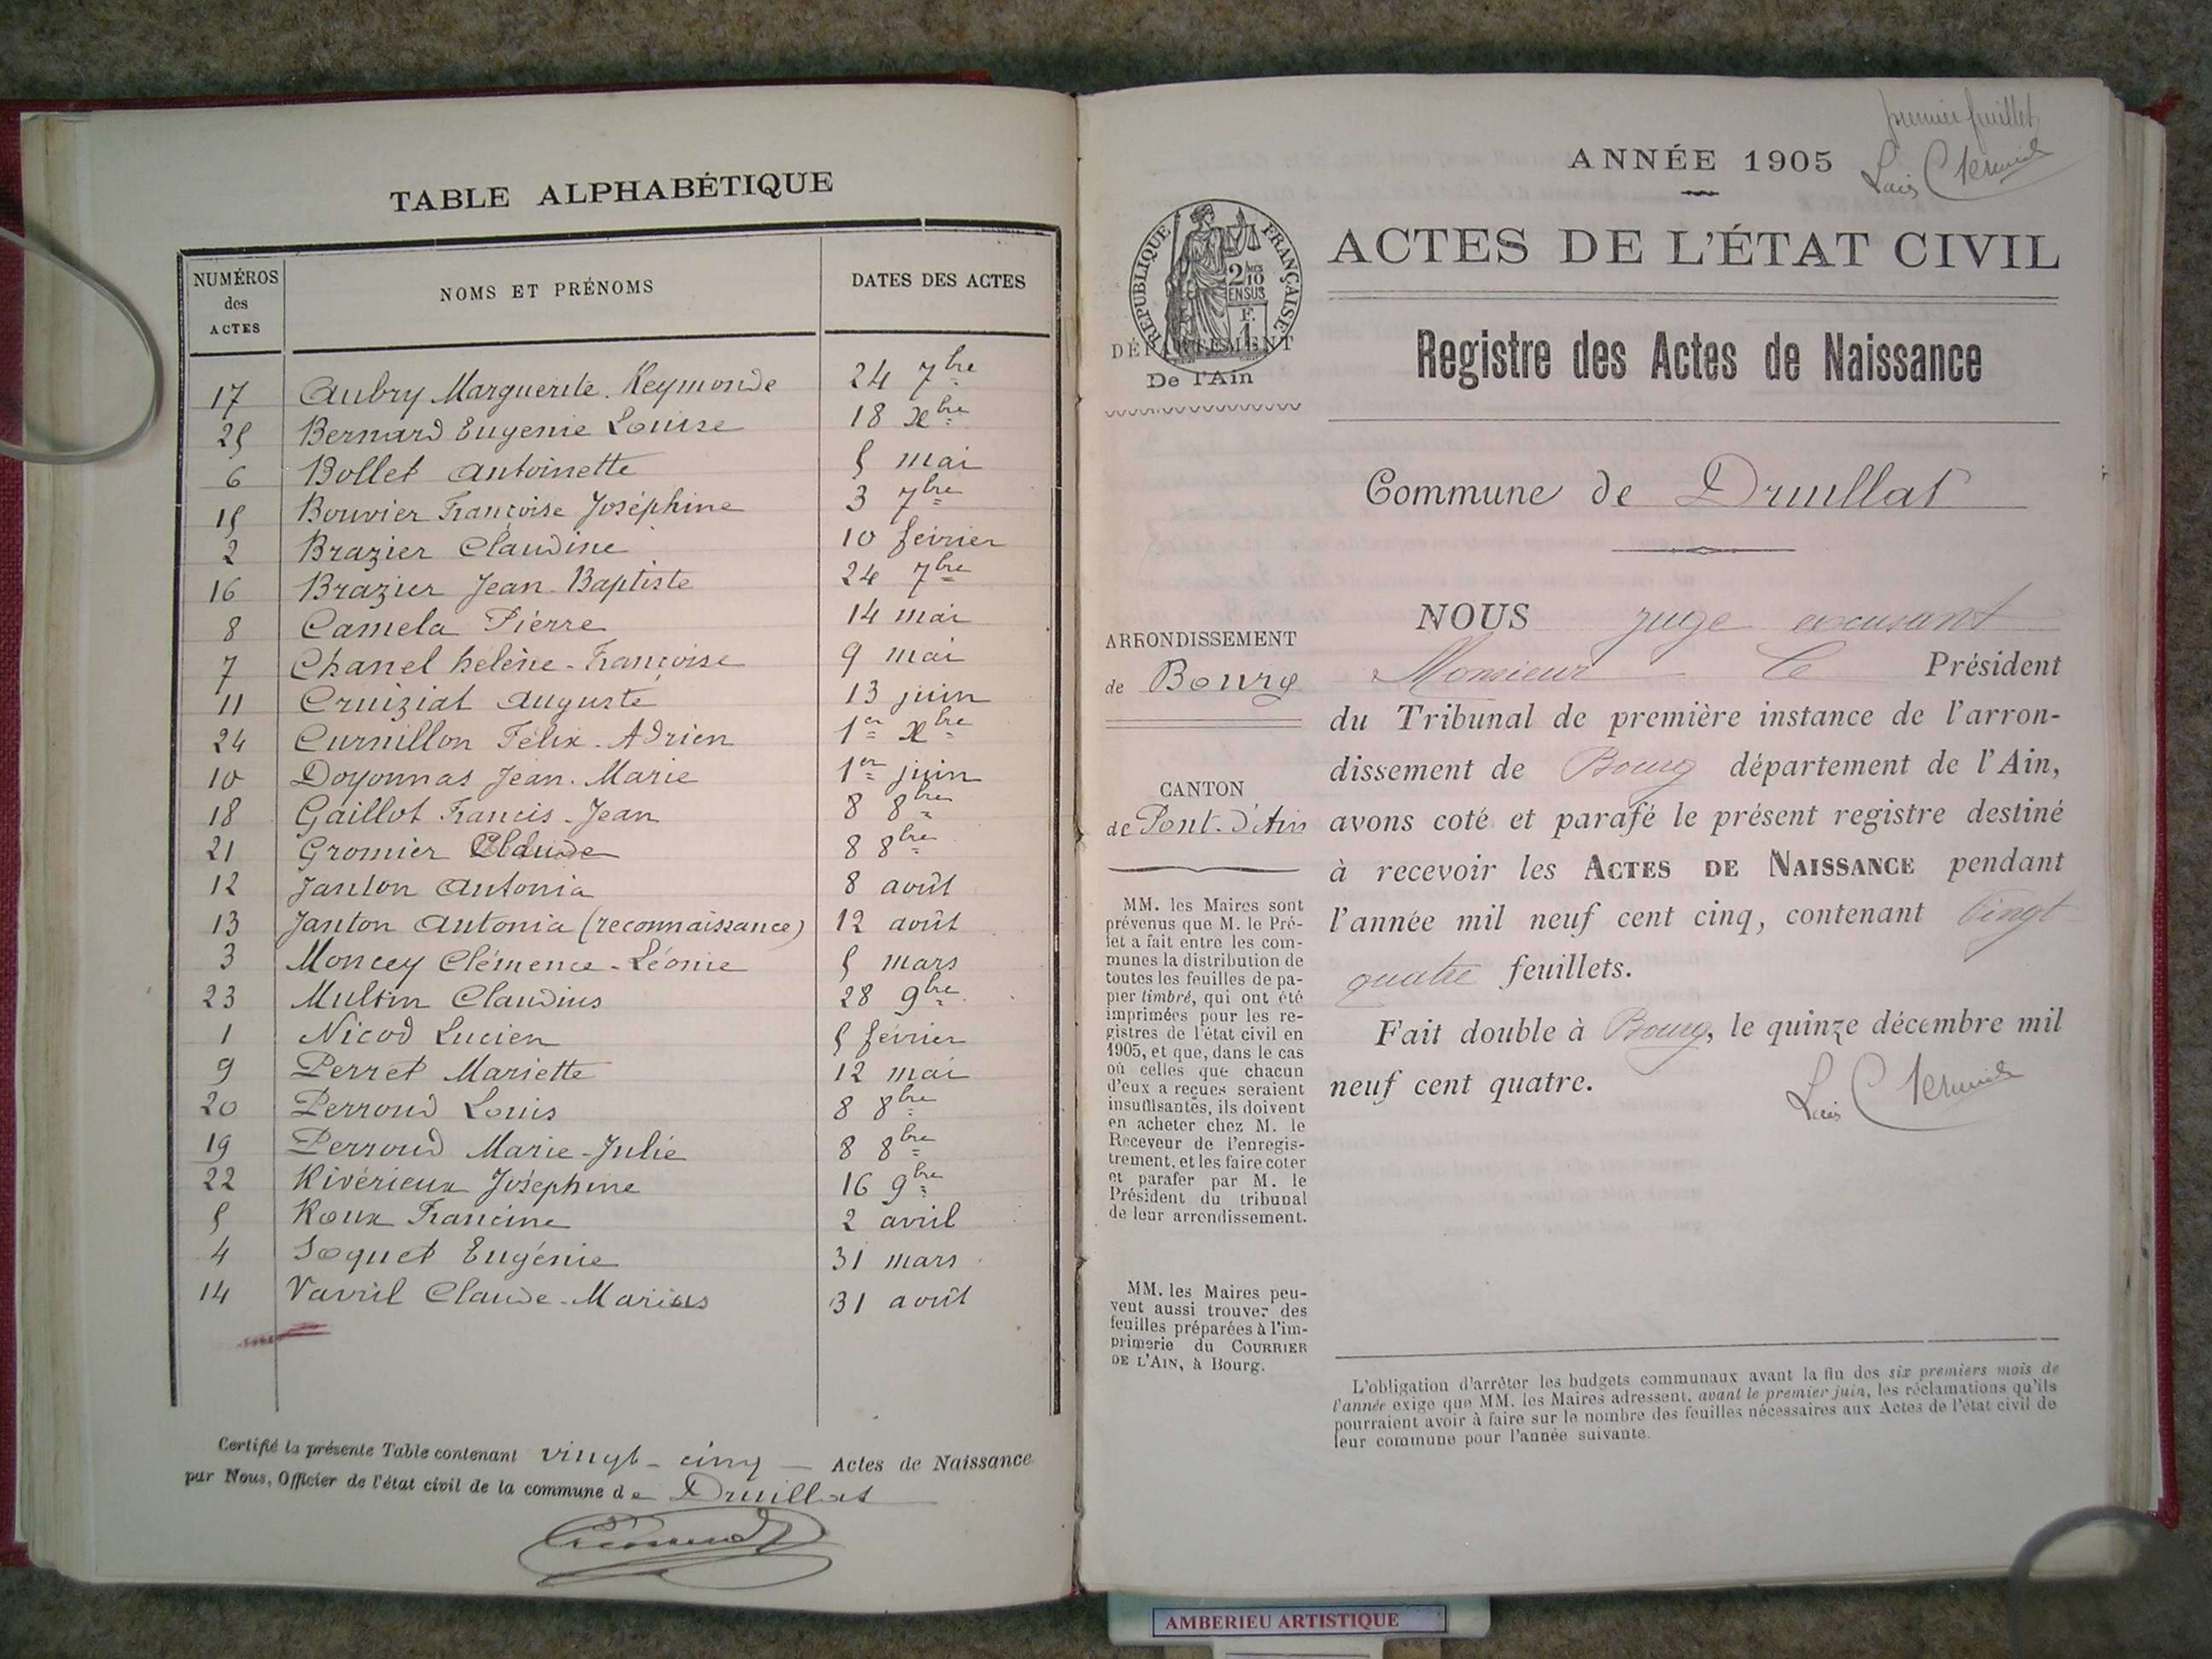 TABLE ALPHABÉTIQUE
NUMÉROS des ACTES NOMS ET PRÉNOMS DATES DES ACTES
17 Aubry Marguerite. Reymonde 24 7bre
25 Bernard Eugenie Louise 18 Xbre
6 Bollet Antoinette 5 mai
15 Bouvier Françoise Joséphine 3 7bre
2 Brazier Claudine 10 février
16 Brazier Jean-Baptiste 24 7bre
8 Camela Pierre 14 mai
7 Chanel heléne-Françoise 9 mai
11 Cruiziat Auguste 13 juin
24 Curnillon Félix-Adrien 1er Xbre
10 Doyonnas Jean-Marie 1er juin
18 Gaillot Francis-Jean 8 8bre
21 Gromier Claude 8 8bre
12 Janton Antonia 8 août
13 Janton Antonia (reconnaissance) 12 août
3 Moncey Clémence-Léonie 5 mars
23 Multin Claudius 28 9bre
1 Nicod Lucien 5 février
9 Perret Mariette 12 mai
20 Perroud Louis 8 8bre
19 Perroud Marie-Julie 8 8bre
22 Rivérieux Joséphine 16 9bre
5 Roux Francine 2 avril
4 Soquet Eugénie 31 mars
14 Vavril Claude-Marius 31 août
Certifié la présente Table contenant vingt-cinq — Actes de Naissance
par Nous, Officier de l'état civil de la commune de Druillat
premier feuillet
ANNÉE 1905
RÉPUBLIQUE FRANÇAISE
2/10 EN SUS
F. 1
DÉPARTEMENT
De l'Ain
ACTES DE L'ÉTAT CIVIL
Registre des Actes de Naissance
Commune de Druillat
ARRONDISSEMENT
de Bourg
CANTON
de Pont-d'Ain
MM. les Maires sont
prévenus que M. le Pré-
fet a fait entre les com-
munes la distribution de
toutes les feuilles de pa-
pier timbré, qui ont été
imprimées pour les re-
gistres de l'état civil en
1905, et que, dans le cas
où celles que chacun
d'eux a reçues seraient
insuffisantes, ils doivent
en acheter chez M. le
Receveur de l'enregis-
trement, et les faire coter
et parafer par M. le
Président du tribunal
de leur arrondissement.
MM. les Maires peu-
vent aussi trouver des
feuilles préparées à l'im-
primerie du COURRIER
DE L'AIN, à Bourg.
NOUS juge excusant
Monsieur Le Président
du Tribunal de première instance de l'arron-
dissement de Bourg département de l'Ain,
avons coté et parafé le présent registre destiné
à recevoir les ACTES DE NAISSANCE pendant
l'année mil neuf cent cinq, contenant Vingt
quatre feuillets.
Fait double à Bourg, le quinze décembre mil
neuf cent quatre.
L'obligation d'arrêter les budgets communaux avant la fin des six premiers mois de
l'année exige que MM. les Maires adressent, avant le premier juin, les réclamations qu'ils
pourraient avoir à faire sur le nombre des feuilles nécessaires aux Actes de l'état civil de
leur commune pour l'année suivante.
AMBERIEU ARTISTIQUE